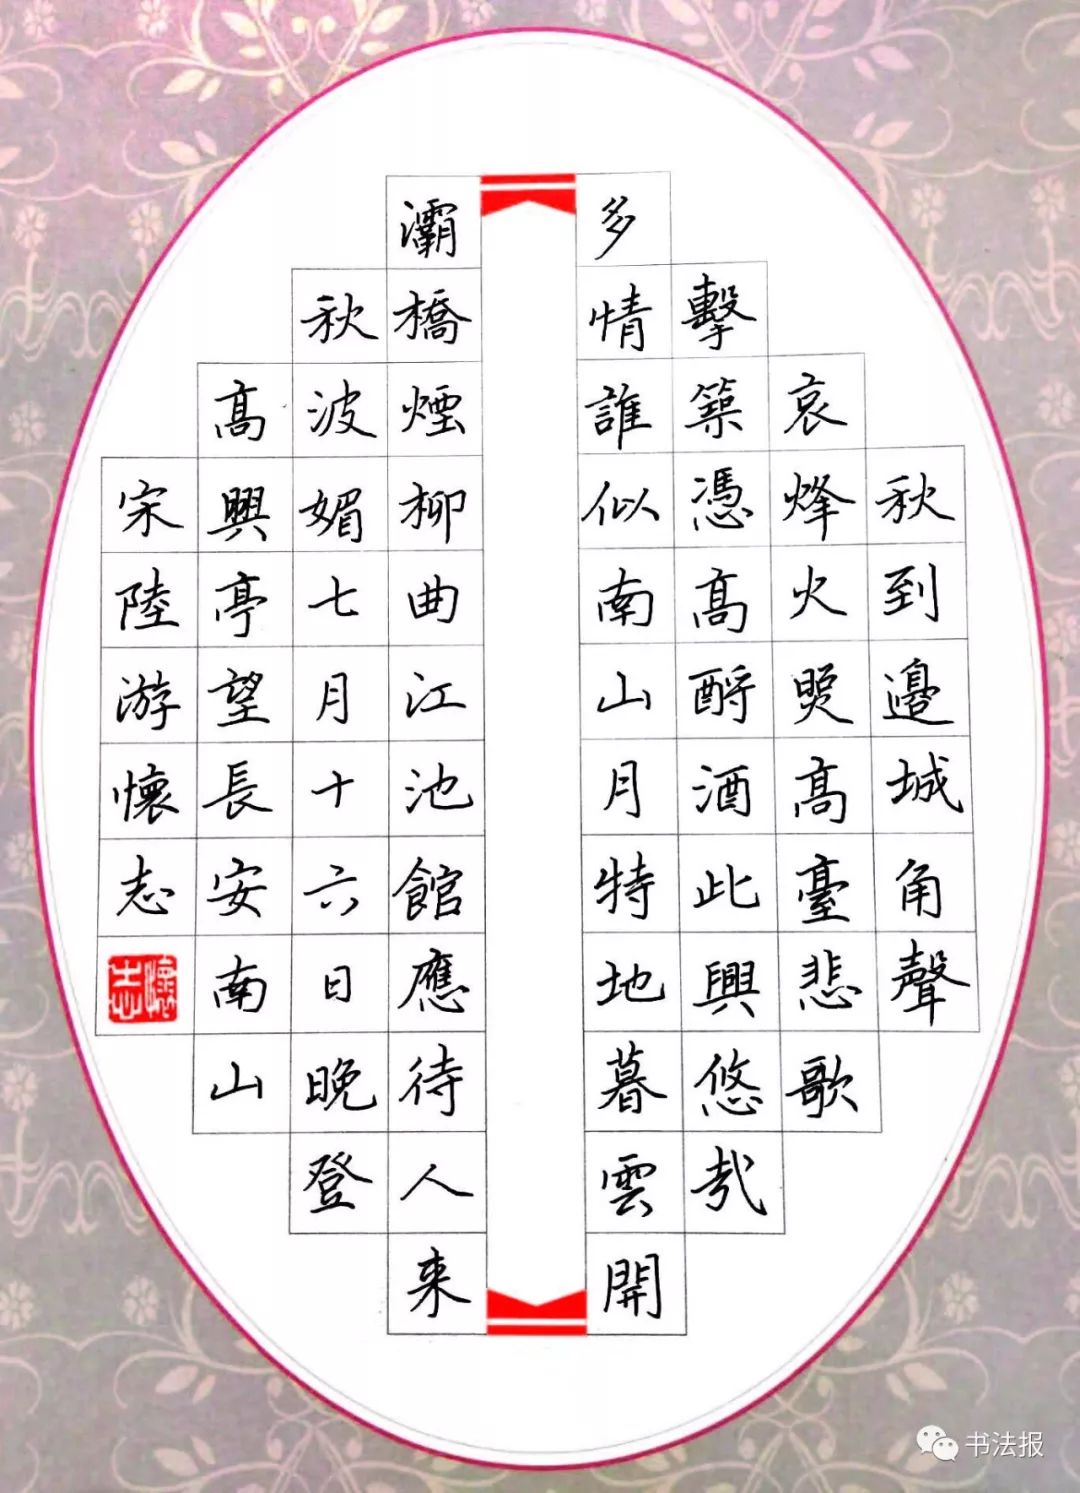 秋到邊城角聲
哀烽火照高臺悲歌
擊築憑高酹酒此興悠哉
多情誰似南山月特地暮雲開
灞橋煙柳曲江池館應待人來
秋波媚七月十六日晚登
高興亭望長安南山
宋陸游懷志
懷志
书法报